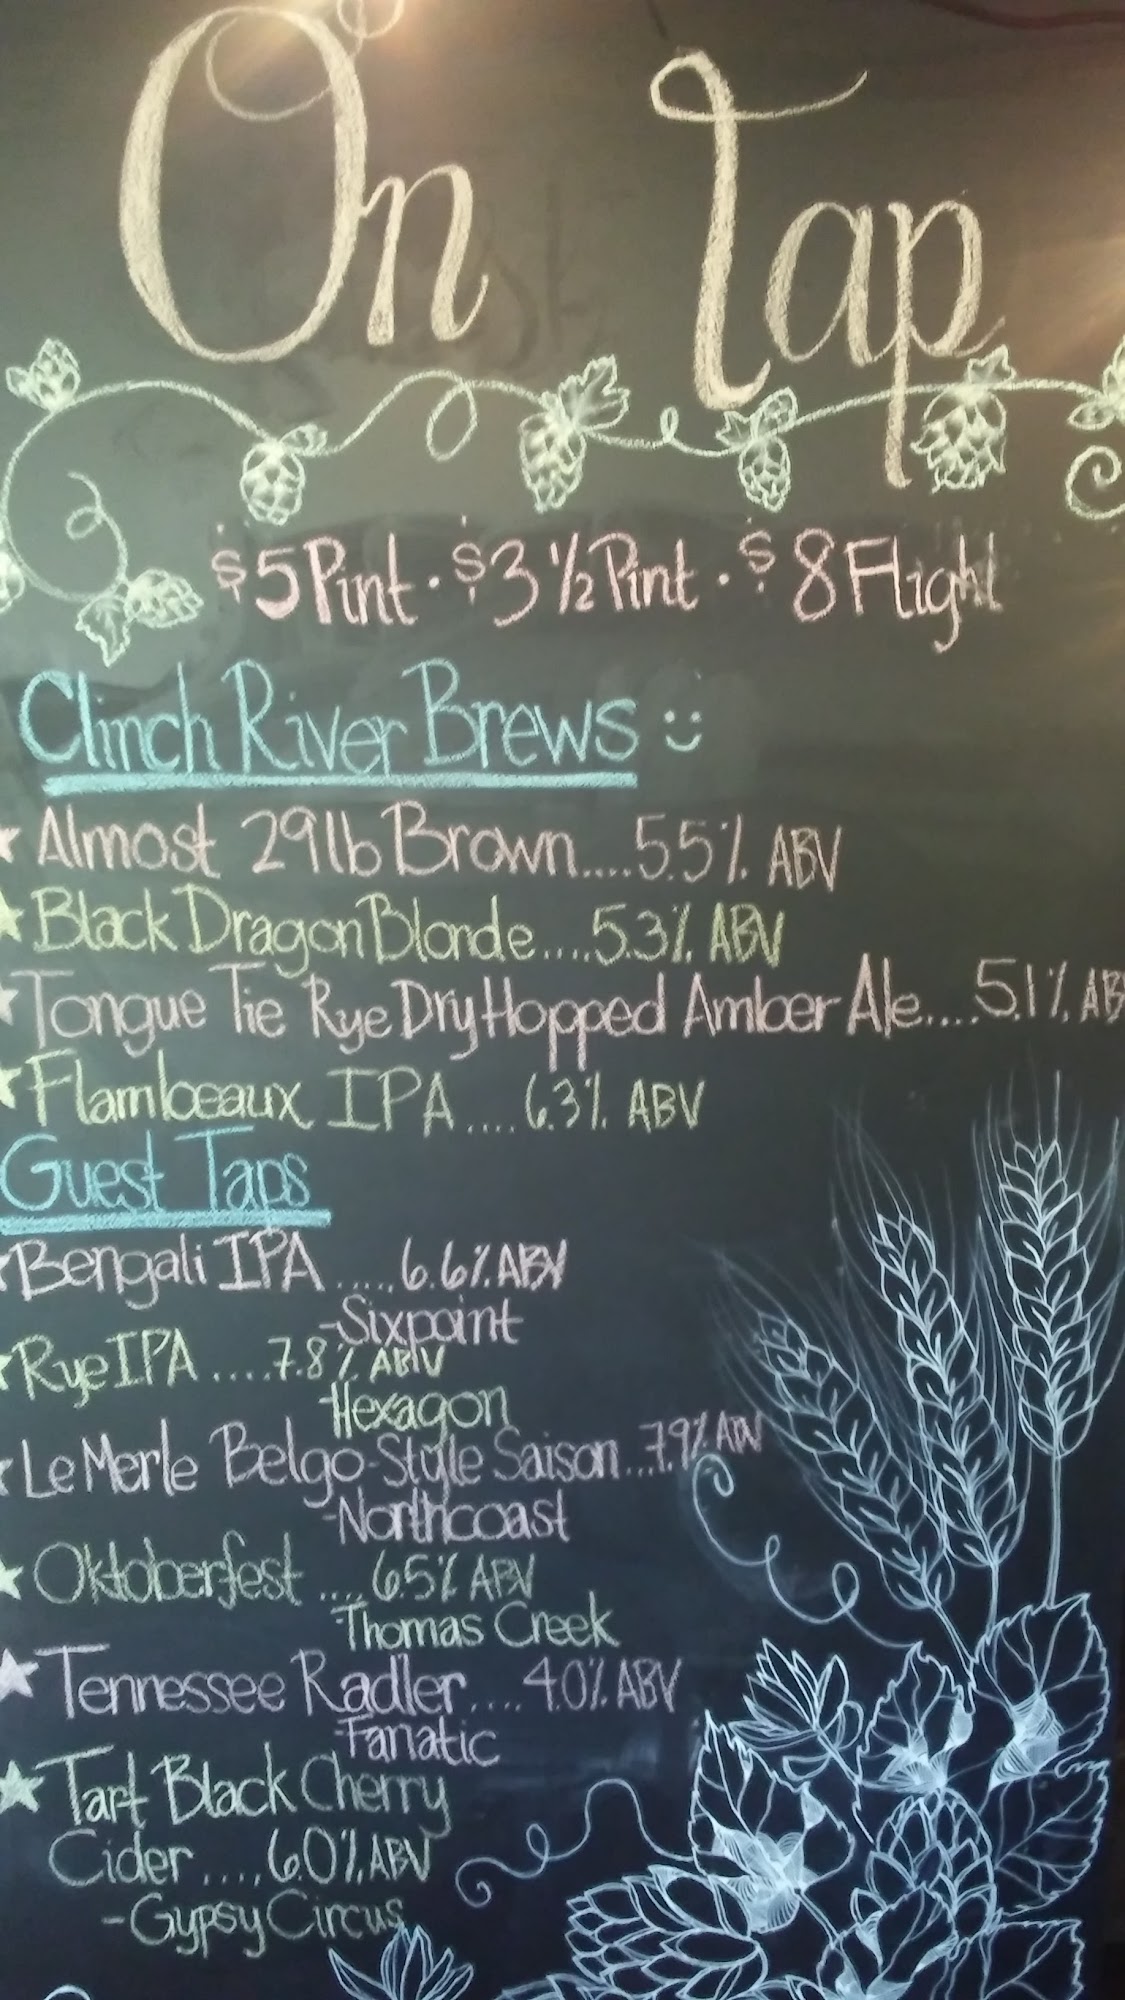 On Tap
$5 Pint · $3 ½ Pint · $8 Flight
Clinch River Brews :)
Almost 29lb Brown....5.5% ABV
Black Dragon Blonde....5.3% ABV
Tongue Tie Rye Dry Hopped Amber Ale....5.1% AB
Flambeaux IPA....6.3% ABV
Guest Taps
Bengali IPA.....6.6% ABV
-Sixpoint
Rye IPA....7.8% ABV
-Hexagon
Le Merle Belgo-Style Saison...7.9% ABV
-Northcoast
Oktoberfest....6.5% ABV
-Thomas Creek
Tennessee Radler....4.0% ABV
-Fanatic
Tart Black Cherry
Cider....6.0% ABV
-Gypsy Circus